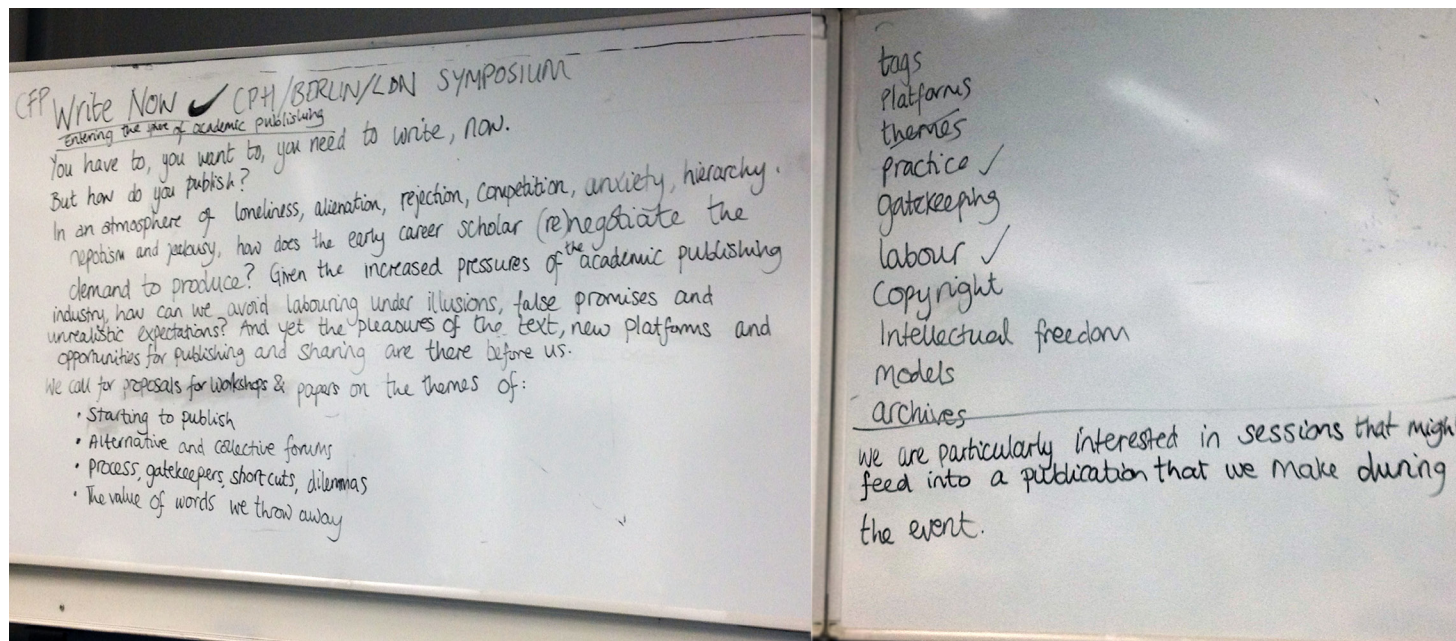 CFP Write Now ✓ CPH/BERLIN/LDN SYMPOSIUM
Entering the of academic publishing
You have to, you want to, you need to write, now.
But how do you publish?
In an atmosphere of loneliness, alienation, rejection, competition, anxiety, hierarchy.
nepotism and jealousy, how does the early career scholar (re)negotiate the
demand to produce? Given the increased pressures of the academic publishing
industry, how can we avoid labouring under illusions, false promises and
unrealistic expectations? And yet the pleasures of the text, new platforms and
opportunities for publishing and sharing are there before us.
We call for proposals for workshops & papers on the themes of:
• Starting to publish
• Alternative and collective forums
• Process, gatekeepers, short cuts, dilemmas
• The value of words we throw away
tags
Platforms
themes
practice ✓
gatekeeping
labour ✓
Copyright
Intellectual freedom
models
archives
we are particularly interested in sessions that migh
feed into a publication that we make during
the event.